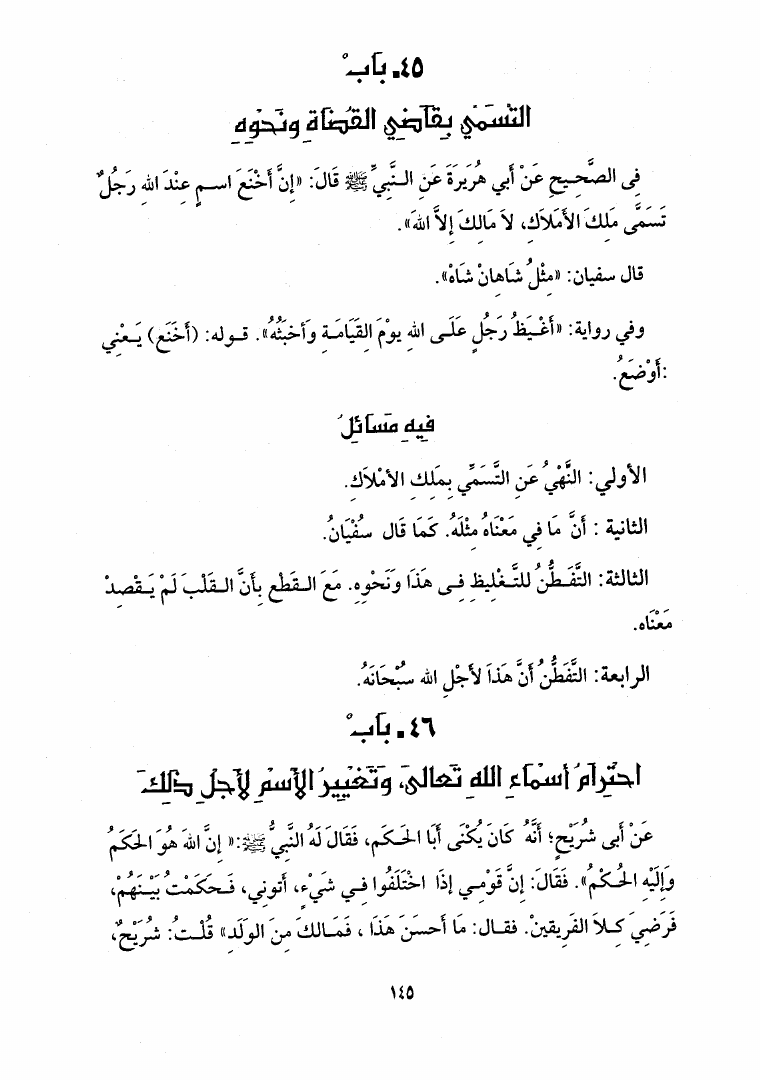 ٤٥. بَابْ
التَّسَمِّي بِقَاضِي القُضَاةِ ونَحْوِهِ
فِى الصَّحِيحِ عَنْ أَبي هُرَيرَةَ عَنِ النَّبيِّ ﷺ قَالَ: «إِنَّ أَخْنَعَ اسمٍ عِنْدَ اللهِ رَجُلٌ
تَسَمَّى مَلِكَ الأَمَلاَكِ، لاَ مَالِكَ إِلاَّ اللهَ».
قال سفيان: «مِثْلُ شَاهَانْ شَاهْ».
وفي رواية: «أَغْيَظُ رَجُلٍ عَلَى اللهِ يوْمَ القِيَامَةِ وَأَخبَثُهُ». قوله: (أَخْنَع) يَعْنِي
:أَوْضَعُ.
فِيهِ مَسَائِلُ
الأولي: النَّهْيُ عَنِ التَّسَمِّي بِمَلِكِ الأمْلاَكِ.
الثانية : أَنَّ مَا فِي مَعْنَاهُ مِثْلَهُ. كَمَا قَال سُفْيَانُ.
الثالثة: التَّفَطُّنُ للتَّغْلِيظِ فِى هَذَا ونَحْوِه. مَعَ القَطْعِ بِأَنَّ القَلْبَ لَمْ يَقْصِدْ
مَعْنَاه.
الرابعة: التَّفَطُّنُ أَنَّ هَذَا لأَجْلِ الله سُبْحَانَهُ.
٤٦. بَابْ
احْتِرَامُ أَسْمَاءِ اللهِ تَعَالىَ، وتَغْيِيرُ الاسْمِ لأَجلِ ذلِكَ
عَنْ أَبى شُرَيْحٍ؛ أَنَّهُ كَانَ يُكْنَى أَبَا الحَكَمِ، فَقَالَ لَهُ النَّبِيُّ ﷺ:« إِنَّ اللهَ هُوَ الحَكَمُ
وَإِلَيْهِ الحُكْمُ». فَقَالَ: إِنَّ قَوْمِي إِذَا اخْتَلَفُوا فِي شَيْءٍ، أَتوني، فَحَكَمْتُ بَيْنَهُمْ،
فَرَضِيَ كِلاَ الفَرِيقينْ. فقال: مَا أَحسَنَ هَذَا ، فَمَالكَ مِنَ الوَلَدِ» قُلْتُ: شُرَيْحٌ،
١٤٥